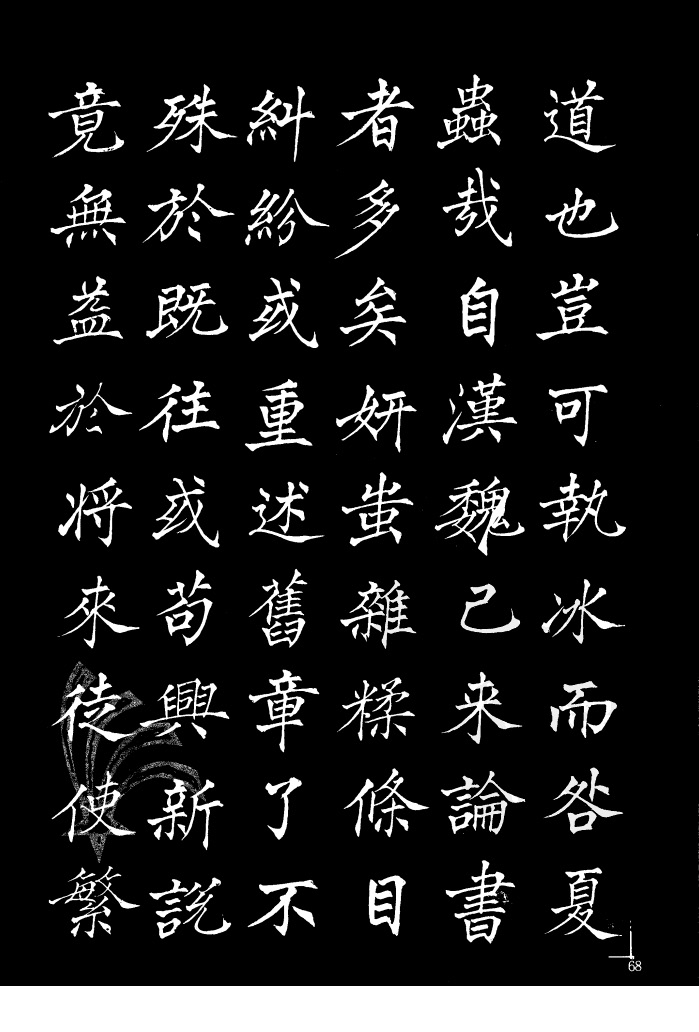 道也豈可執冰而咎夏
蟲哉自漢魏己来論書
者多矣妍蚩雜糅條目
糾紛或重述舊章了不
殊於既往或苟興新說
竟無益於將來徒使繁
68